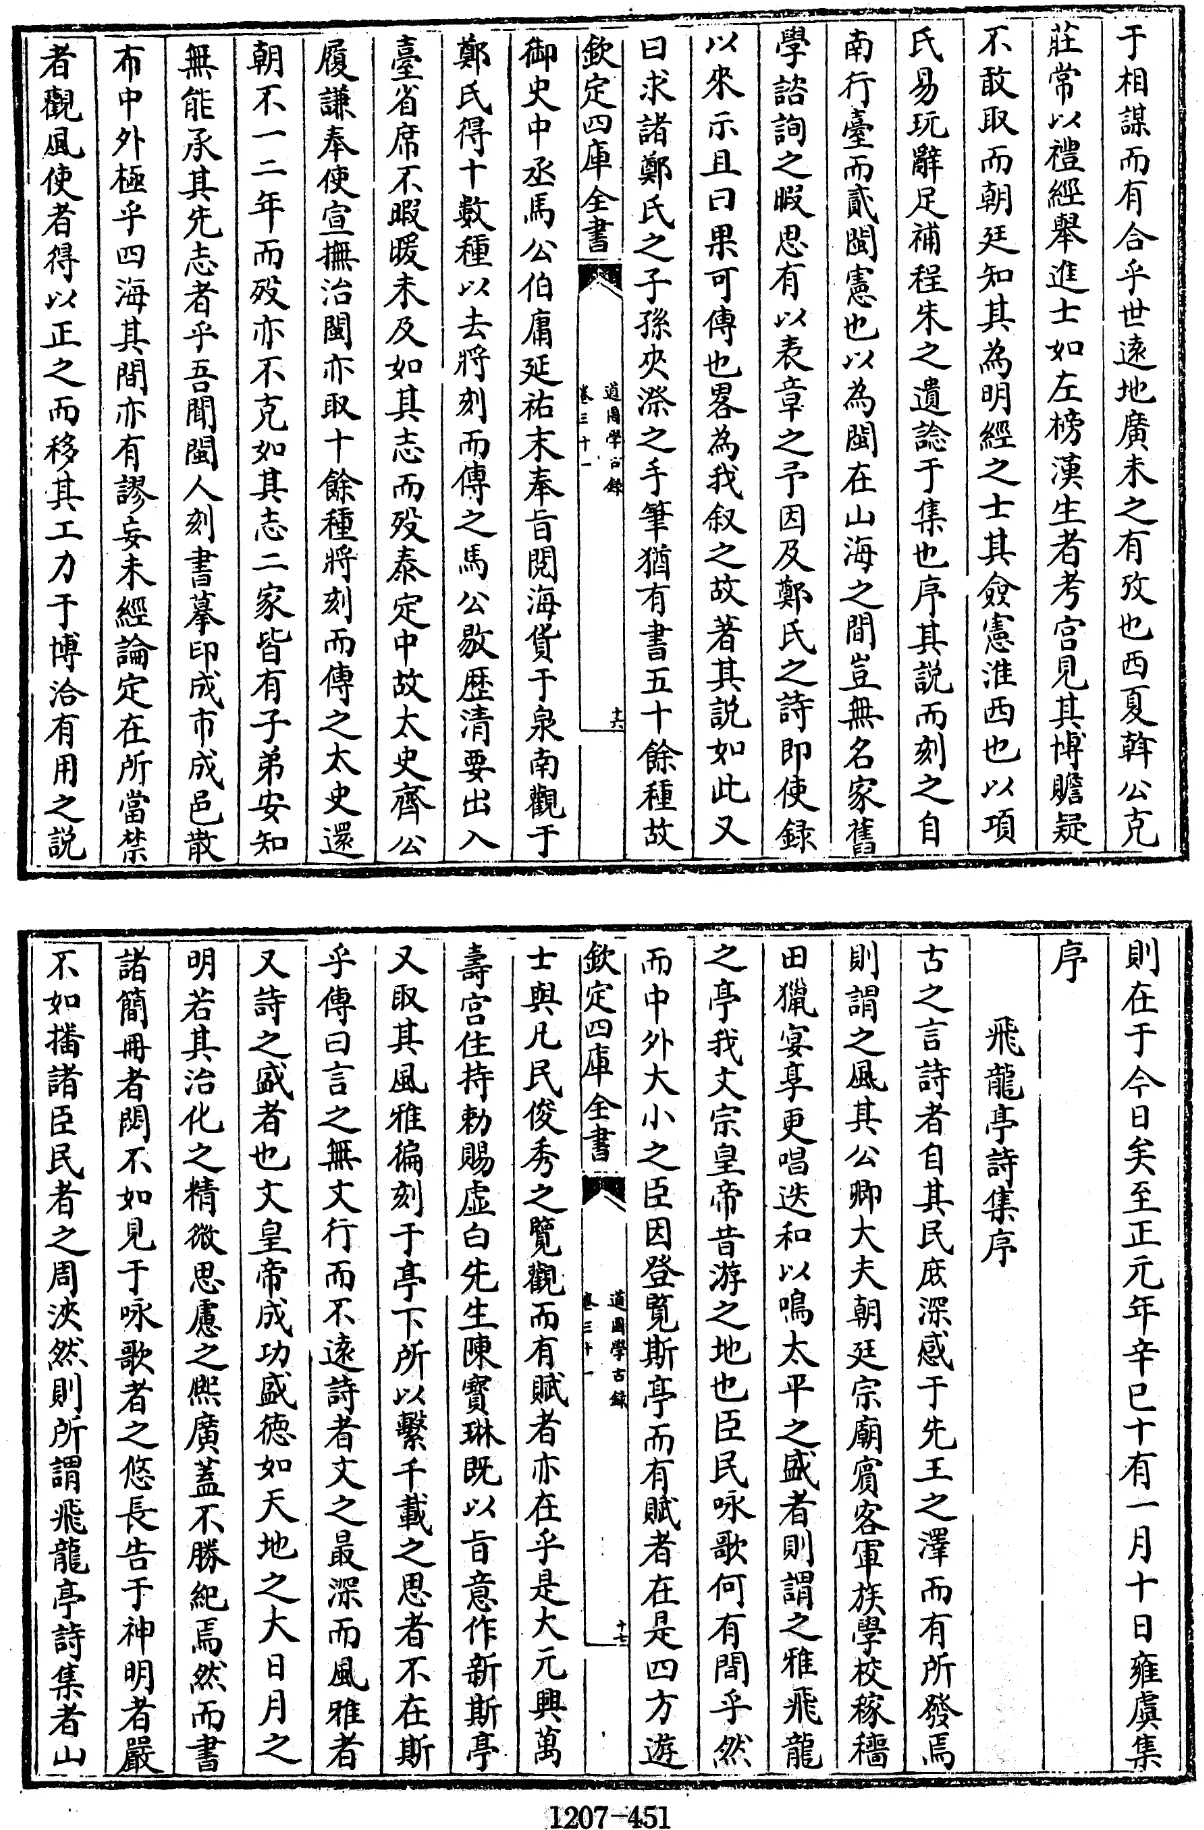 于相謀而有合乎世遠地廣未之有攷也西夏斡公克
莊常以禮經舉進士如左榜漢生者考宫見其博贍疑
不敢取而朝廷知其為明經之士其僉憲淮西也以項
氏易玩辭足補程朱之遺諗于集也序其説而刻之自
南行臺而貳閩憲也以為閩在山海之間豈無名家舊
學諮詢之暇思有以表章之予因及鄭氏之詩即使録
以來示且曰果可傳也畧為我叙之故著其説如此又
曰求諸鄭氏之子孫夾漈之手筆猶有書五十餘種故
欽定四庫全書
道園學古錄
卷三十一
十六
御史中丞馬公伯庸延祐末奉㫖閲海貨于泉南觀于
鄭氏得十數種以去將刻而傳之馬公敭歴清要出入
臺省席不暇暖未及如其志而殁泰定中故太史齊公
履謙奉使宣撫治閩亦取十餘種將刻而傳之太史還
朝不一二年而殁亦不克如其志二家皆有子弟安知
無能承其先志者乎吾聞閩人刻書摹印成市成邑散
布中外極乎四海其間亦有謬妄未經論定在所當禁
者觀風使者得以正之而移其工力于博洽有用之説
則在于今日矣至正元年辛巳十有一月十日雍虞集
序
飛龍亭詩集序
古之言詩者自其民庶深感于先王之澤而有所發焉
則謂之風其公卿大夫朝廷宗廟賓客軍旅學校稼穡
田獵宴享更唱迭和以鳴太平之盛者則謂之雅飛龍
之亭我文宗皇帝昔游之地也臣民咏歌何有間乎然
而中外大小之臣因登覧斯亭而有賦者在是四方遊
欽定四庫全書
道園學古錄
卷三十一
十七
士與凡民俊秀之覽觀而有賦者亦在乎是大元興萬
壽宫住持勅賜虚白先生陳寳琳既以㫖意作新斯亭
又取其風雅徧刻于亭下所以繫千載之思者不在斯
乎傳曰言之無文行而不遠詩者文之最深而風雅者
又詩之盛者也文皇帝成功盛徳如天地之大日月之
明若其治化之精微思慮之熙廣蓋不勝紀焉然而書
諸簡冊者閟不如見于咏歌者之悠長告于神明者嚴
不如播諸臣民者之周浹然則所謂飛龍亭詩集者山
1207-451